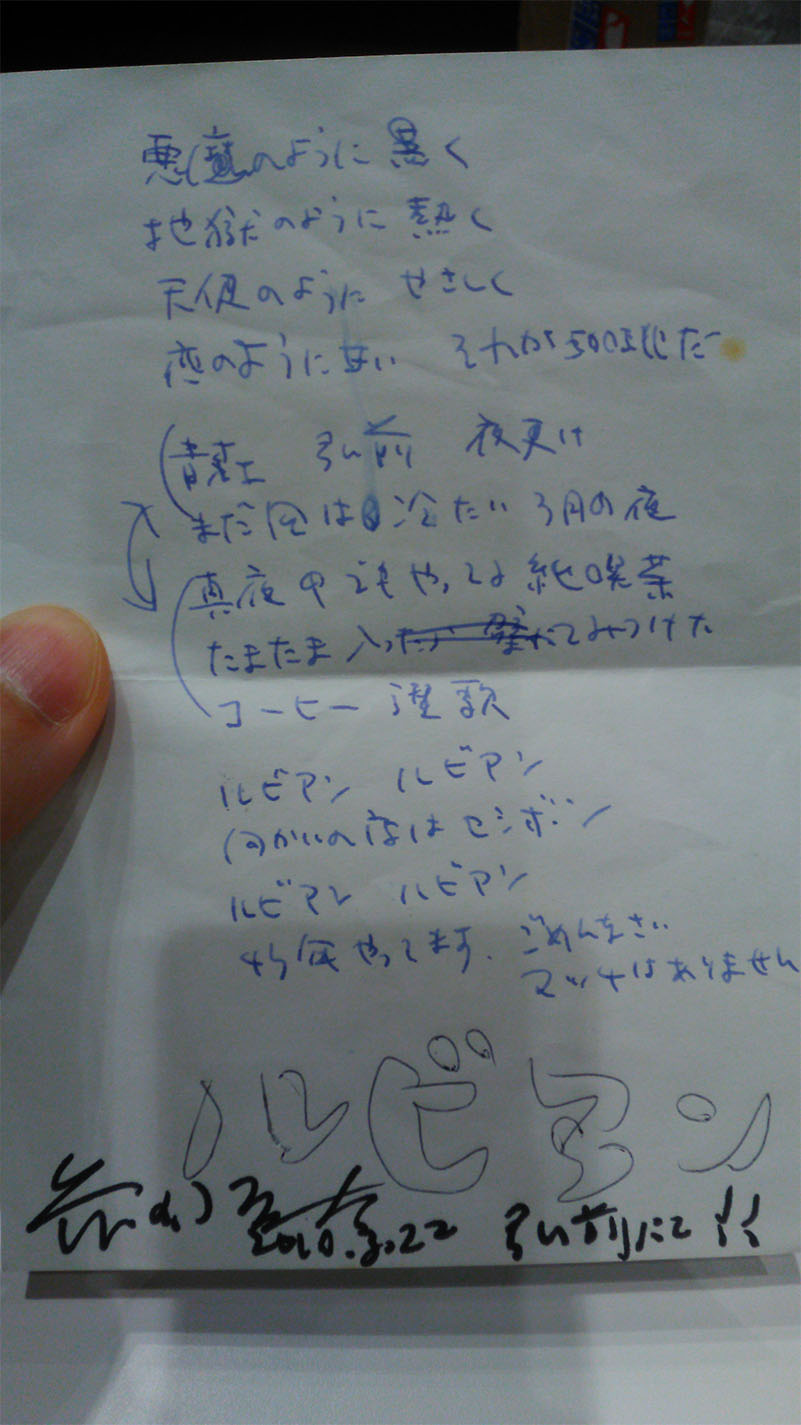 悪魔のように黒く
地獄のように熱く
天使のように やさしく
恋のように甘い それが500
青森 弘前 夜更け
まだ風は冷たい 3月の夜
真夜中でもやってる 純喫茶
たまたま入った 壁 でみつけた
コーヒー 讃歌
ルビアン ルビアン
向かいの店は セシボン
ルビアン ルビアン
45年やってます。ごめんなさい
マッチはありません
ルビアン
2010.3.22 弘前にて